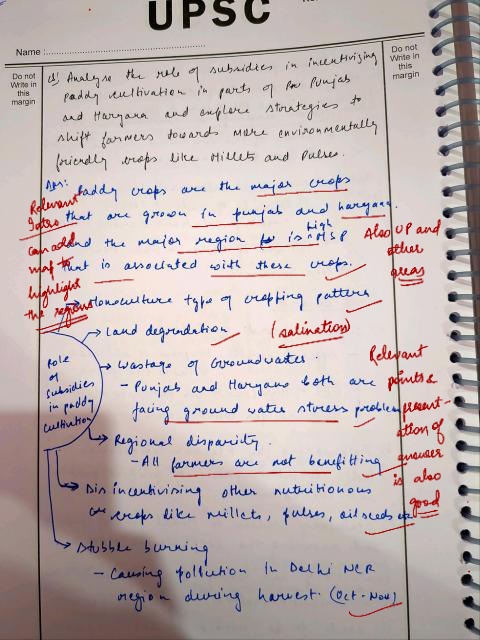 UPSC
Name :
Do not Write in this margin
Do not Write in this margin
Q) Analyse the role of subsidies in incentivizing
paddy cultivation in parts of Punjab
and Haryana and explore strategies to
shift farmers towards more environmentally
friendly crops like Millets and Pulses.
Ans: Paddy crops are the major crops
that are grown in punjab and haryana.
and the major region is high MSP
that is associated with these crops.
Relevant
Intro
can add
map to
highlight
the regions
Also UP and
other
areas
→ Monoculture type of cropping pattern
→ Land degradation (salination)
→ Wastage of Groundwater.
- Punjab and Haryana both are
facing ground water stress problem
Role
of
subsidies
in paddy
cultivation
Relevant
points &
present-
ation of
answer
is also
good
→ Regional disparity.
- All farmers are not benefitting
→ Disincentivising other nutritionous
crops like millets, pulses, oilseeds etc
→ Stubble burning
- Causing pollution in Delhi NCR
region during harvest. (Oct-Nov)